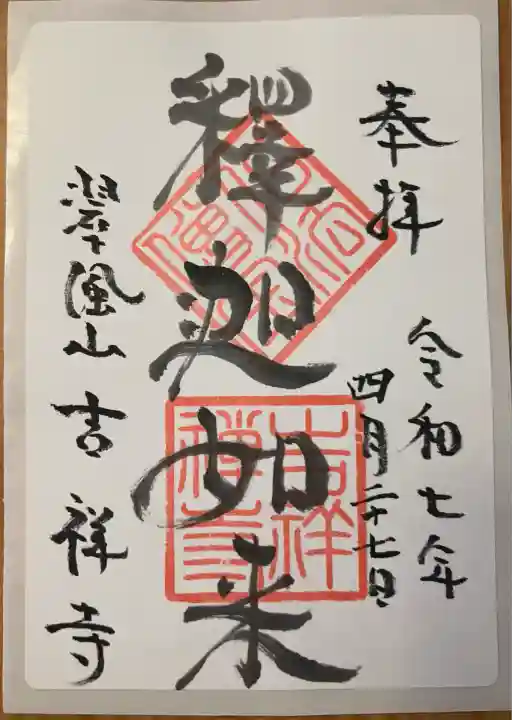 奉拝
令和七年
四月二十七日
釋迦如来
吉祥
禪寺
翠風山 吉祥寺